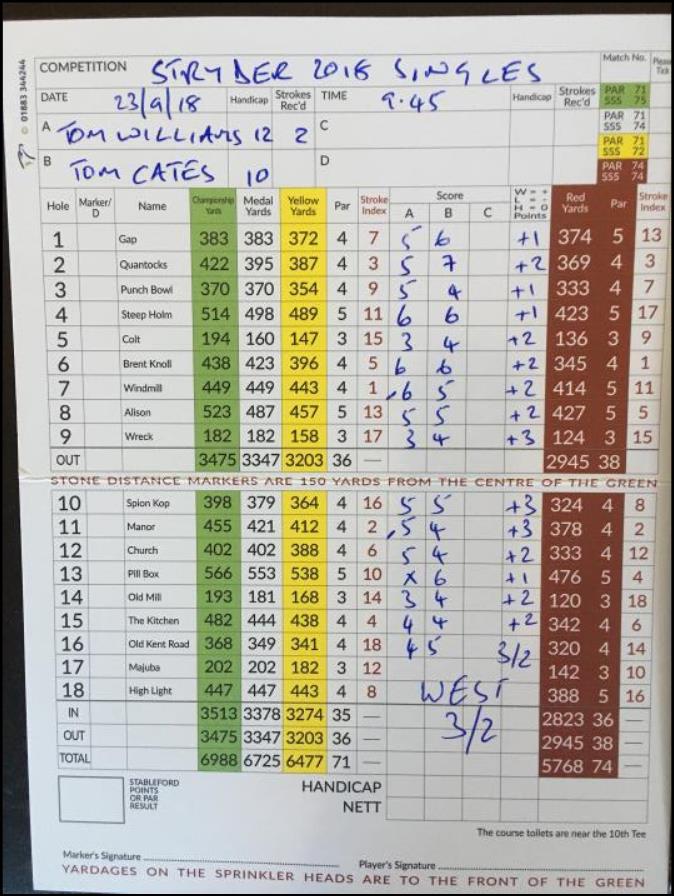 © 01883 344244
COMPETITION STRYDER 2018 SINGLES Match No. Please Tick
DATE 23/9/18 Handicap Strokes Rec'd TIME 9.45 Handicap Strokes Rec'd PAR 71 SSS 75
A TOM WILLIAMS 12 2 C PAR 71 SSS 74
PAR 71 SSS 72
B TOM CATES 10 D PAR 74 SSS 74
Hole Marker/D Name Championship Yards Medal Yards Yellow Yards Par Stroke Index Score A B C W = + L = - H = O Points Red Yards Par Stroke Index
1 Gap 383 383 372 4 7 5 6 +1 374 5 13
2 Quantocks 422 395 387 4 3 5 7 +2 369 4 3
3 Punch Bowl 370 370 354 4 9 5 4 +1 333 4 7
4 Steep Holm 514 498 489 5 11 6 6 +1 423 5 17
5 Colt 194 160 147 3 15 3 4 +2 136 3 9
6 Brent Knoll 438 423 396 4 5 6 6 +2 345 4 1
7 Windmill 449 449 443 4 1 6 5 +2 414 5 11
8 Alison 523 487 457 5 13 5 5 +2 427 5 5
9 Wreck 182 182 158 3 17 3 4 +3 124 3 15
OUT 3475 3347 3203 36 — 2945 38
STONE DISTANCE MARKERS ARE 150 YARDS FROM THE CENTRE OF THE GREEN
10 Spion Kop 398 379 364 4 16 5 5 +3 324 4 8
11 Manor 455 421 412 4 2 5 4 +3 378 4 2
12 Church 402 402 388 4 6 5 4 +2 333 4 12
13 Pill Box 566 553 538 5 10 x 6 +1 476 5 4
14 Old Mill 193 181 168 3 14 3 4 +2 120 3 18
15 The Kitchen 482 444 438 4 4 4 4 +2 342 4 6
16 Old Kent Road 368 349 341 4 18 4 5 3/2 320 4 14
17 Majuba 202 202 182 3 12 142 3 10
18 High Light 447 447 443 4 8 WEST 388 5 16
IN 3513 3378 3274 35 — 3/2 2823 36 —
OUT 3475 3347 3203 36 — 2945 38 —
TOTAL 6988 6725 6477 71 — 5768 74 —
STABLEFORD POINTS OR PAR RESULT
HANDICAP
NETT
The course toilets are near the 10th Tee
Marker's Signature Player's Signature
YARDAGES ON THE SPRINKLER HEADS ARE TO THE FRONT OF THE GREEN